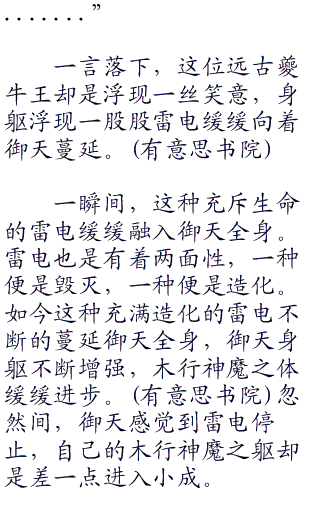 ．．．．．．．”
一言落下，这位远古夔
牛王却是浮现一丝笑意，身
躯浮现一股股雷电缓缓向着
御天蔓延。(有意思书院)
一瞬间，这种充斥生命
的雷电缓缓融入御天全身。
雷电也是有着两面性，一种
便是毁灭，一种便是造化。
如今这种充满造化的雷电不
断的蔓延御天全身，御天身
躯不断增强，木行神魔之体
缓缓进步。(有意思书院)忽
然间，御天感觉到雷电停
止，自己的木行神魔之躯却
是差一点进入小成。